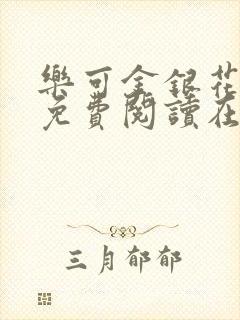 樂可金銀花
免費閱讀在
三月郁郁